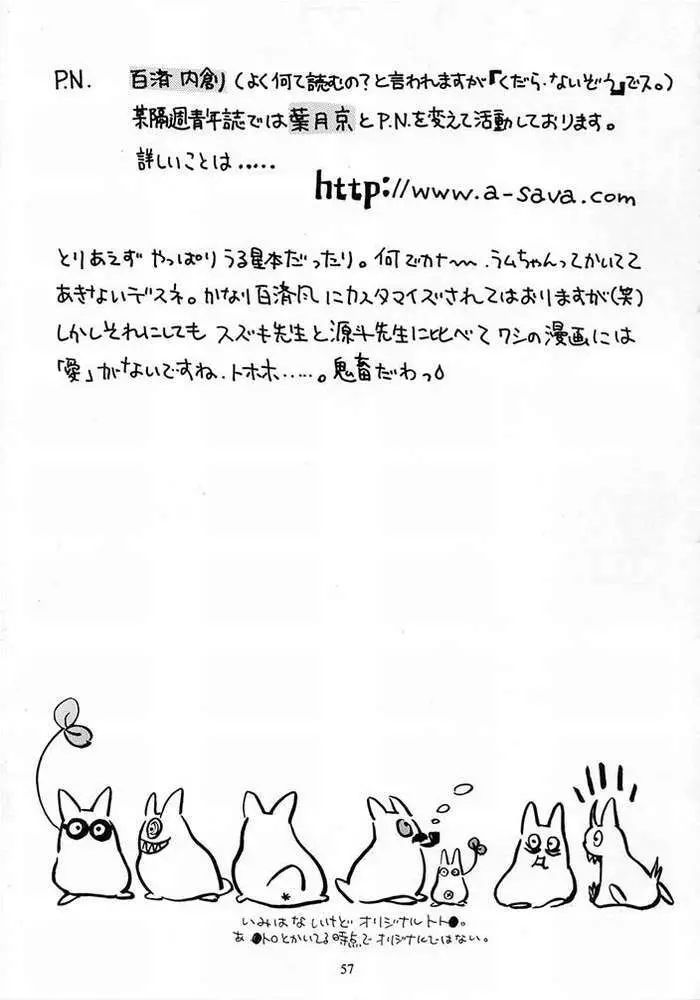 P.N. 百済 内創(よく何て読むの?と言われますが『くだら・ないぞう』でス。)
某隔週青年誌では葉月京とP.N.を変えて活動しております。
詳しいことは.....
http://www.a-sava.com
とりあえず やっぱり うる星本だったり。何でカナ〜〜.ラムちゃんってかいてて
あきないデスネ。かなり百済風にカスタマイズされてはおりますが(笑)
しかしそれにしても スズキ先生と源斗先生に比べて ワシの漫画には
「愛」がないですね.トホホ......。鬼畜だわっ
いみはないけど オリジナルトト●。
あ ●トロとかいてる時点で オリジナルではない。
57